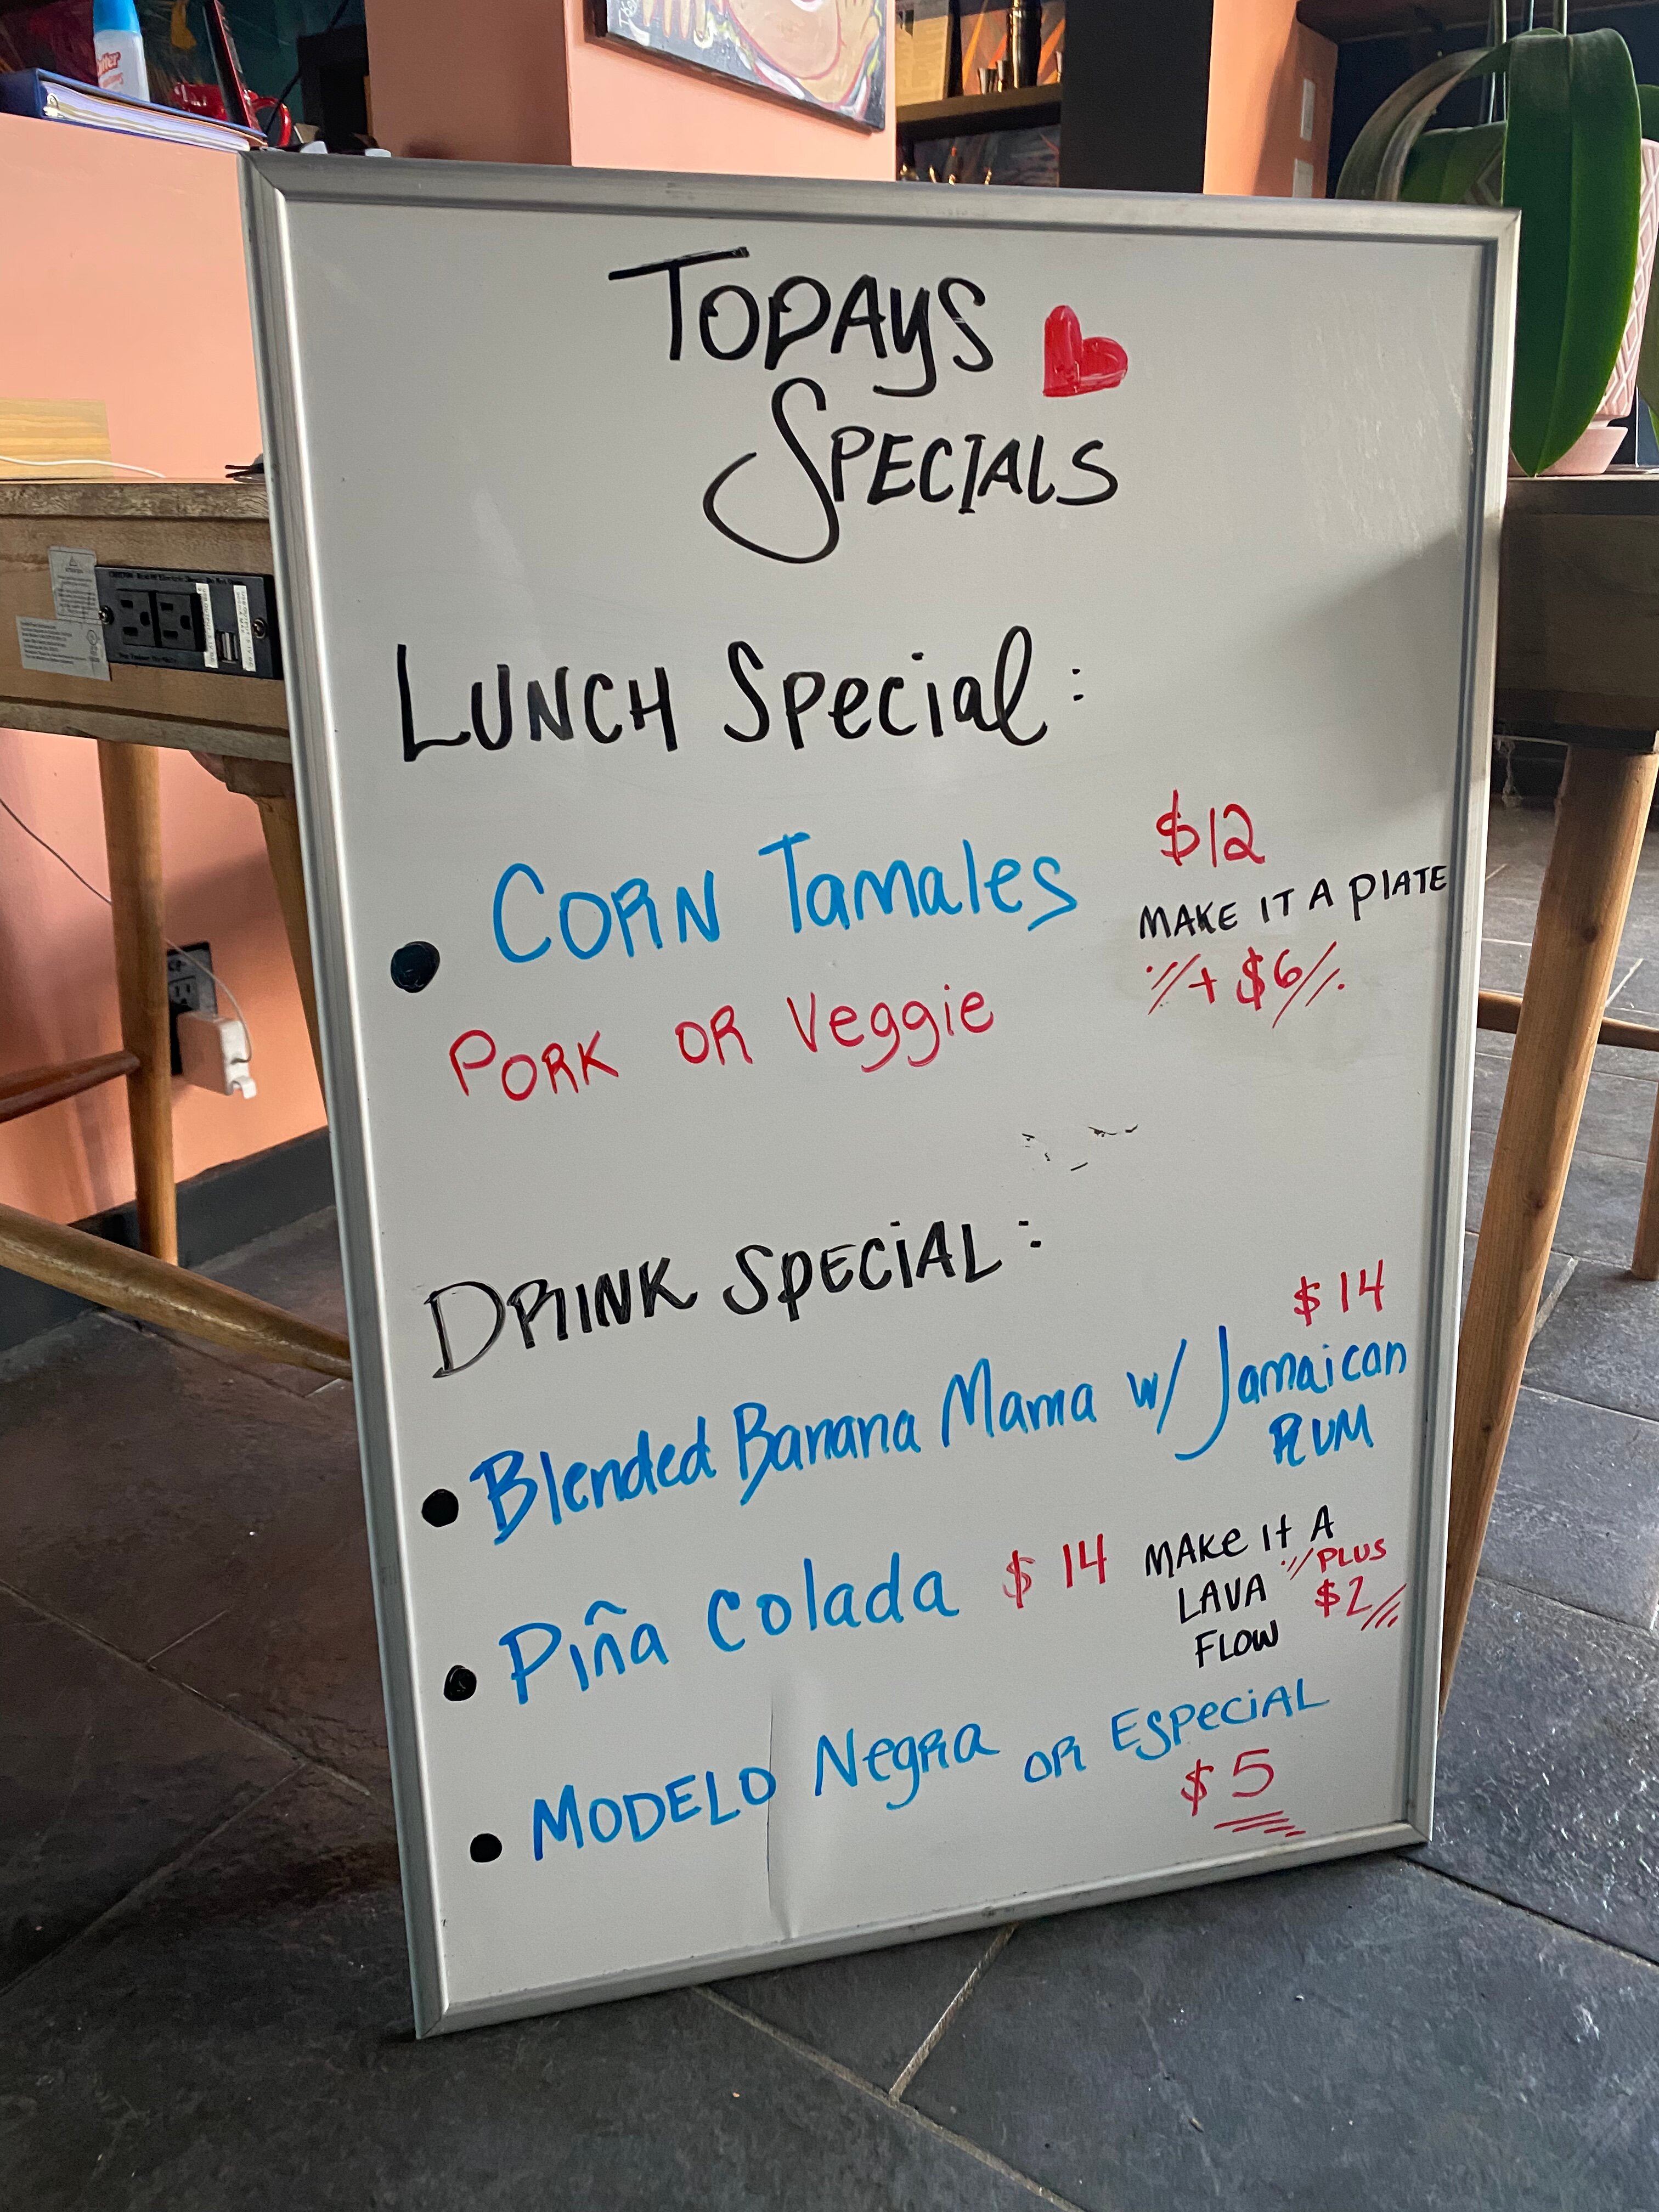 TODAYS
SPECIALS
LUNCH Special:
$12
CORN Tamales
MAKE IT A PlATE
+ $6
PORK OR Veggie
DRINK SPECiAL:
$14
Blended Banana Mama w/ Jamaican
RUM
Piña Colada $14
MAKe It A
LAVA
PLUS
$2
FLOW
MODELO Negra OR ESPeCiAL
$5